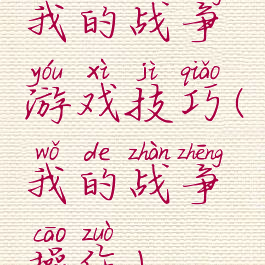 我的战争
yóu xì jì qiǎo
游戏技巧(
wǒ de zhàn zhēng
我的战争
cāo zuò
操作)